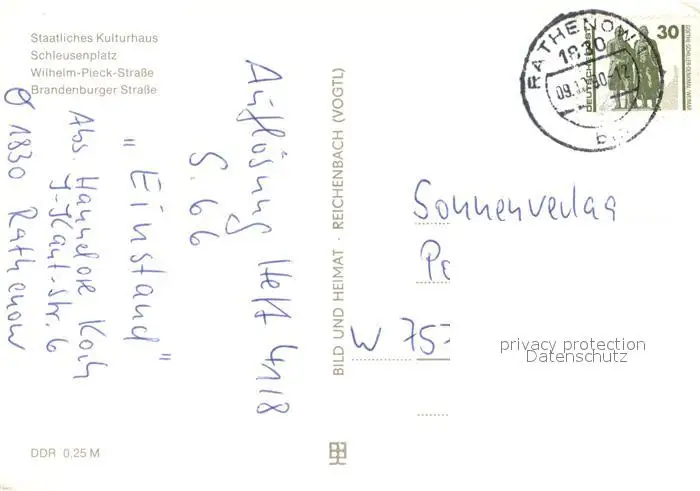 Staatliches Kulturhaus
Schleusenplatz
Wilhelm-Pieck-Straße
Brandenburger Straße
Auflösung Heft 4118
S. 66
"Einstand"
Abs. Hannelore Koch
J.-Kant-Str. 6
O 1830 Rathenow
DDR 0,25 M
BILD UND HEIMAT · REICHENBACH (VOGTL)
RATHENOW
1830
30
DEUTSCHE POST
Sonnenverlag
W 757
privacy protection
Datenschutz